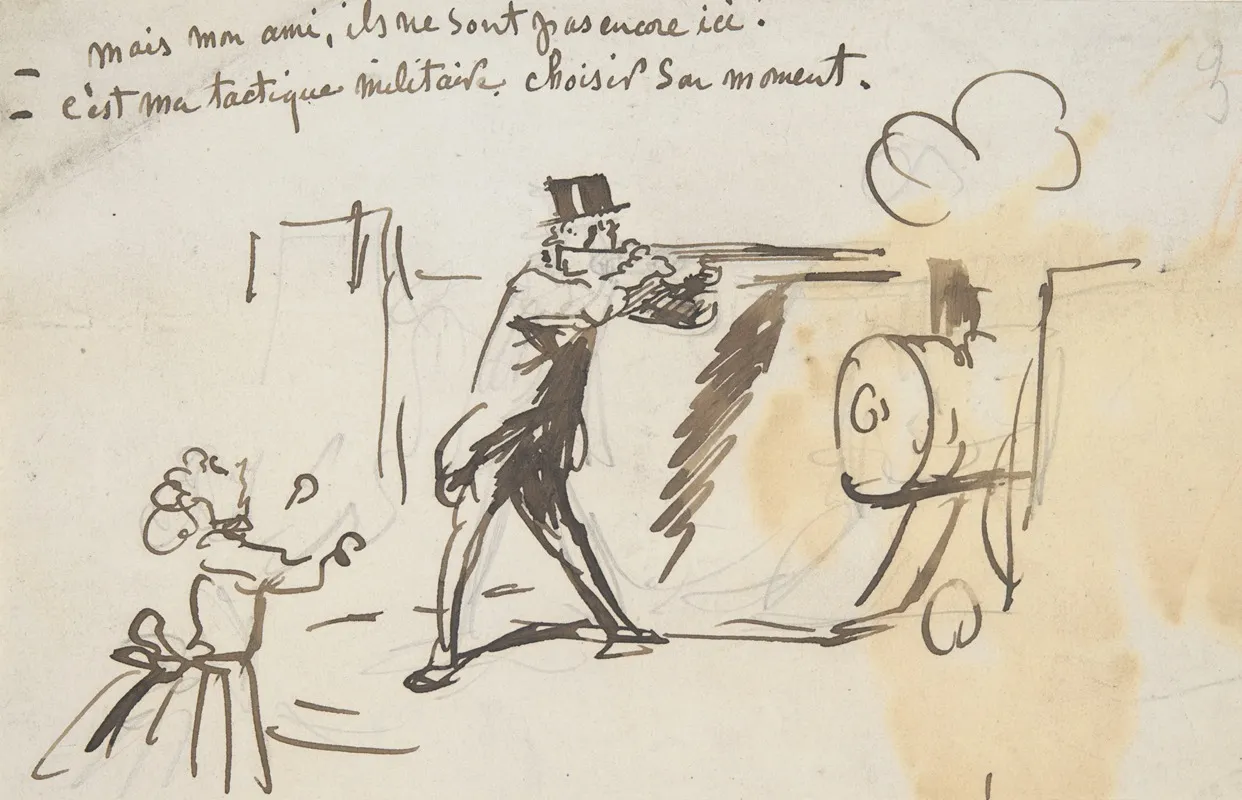 - mais mon ami, ils ne sont pas encore ici.
- c'est ma tactique militaire. choisir son moment.